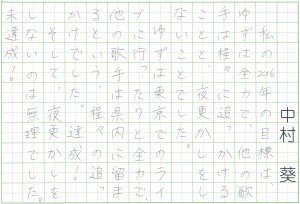 中村 葵
私の2016年の目標は、
ゆずは全力で、他の歌
手は程々に追っかける
こと、夜更かしをし
ないことでした。
ゆずは東京でのライ
ブに行ったりと全力で、
他の歌手は県内に留ま
るという、程々の追っ
かけでした。達成！
夜更かしを
しないのは、無理でした。
未達成！